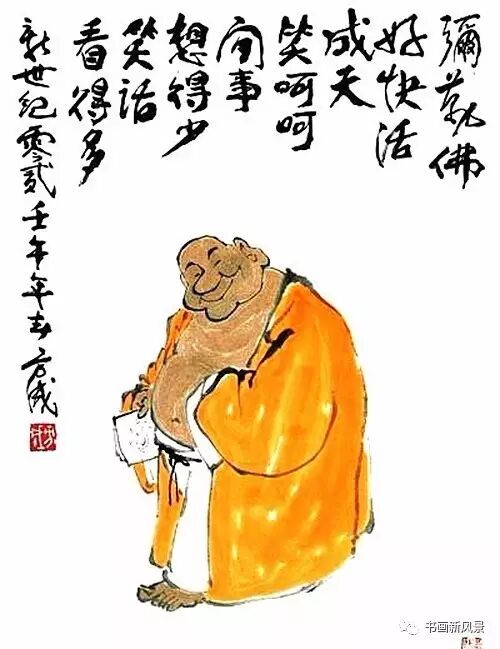 彌勒佛
好快活
成天
笑呵呵
闲事
想得少
笑话
看得多
新世纪零贰壬午年春方成
书画新风景